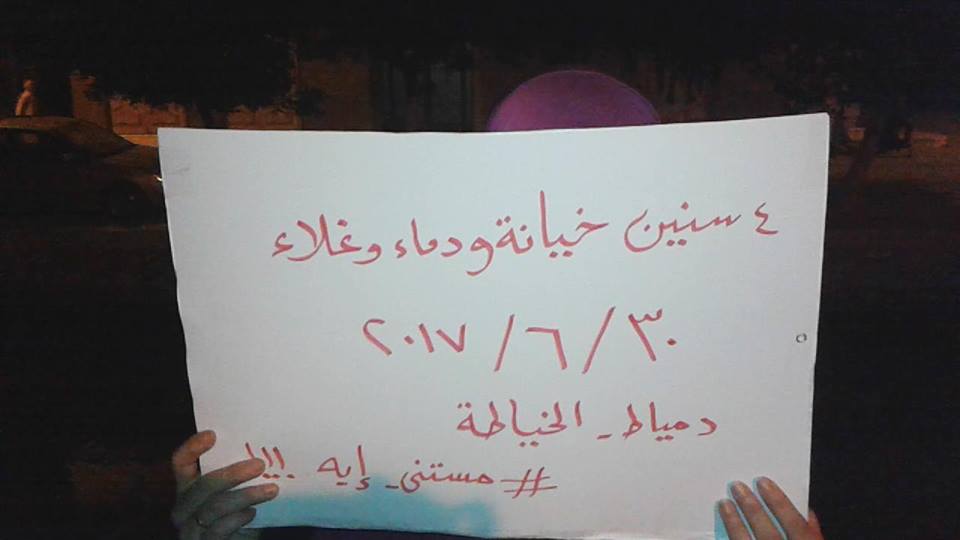 ٤ سنين خيانة ودماء وغلاء
٣٠ / ٦ / ٢٠١٧
دمياط - الخياطة
# مستني - إيه